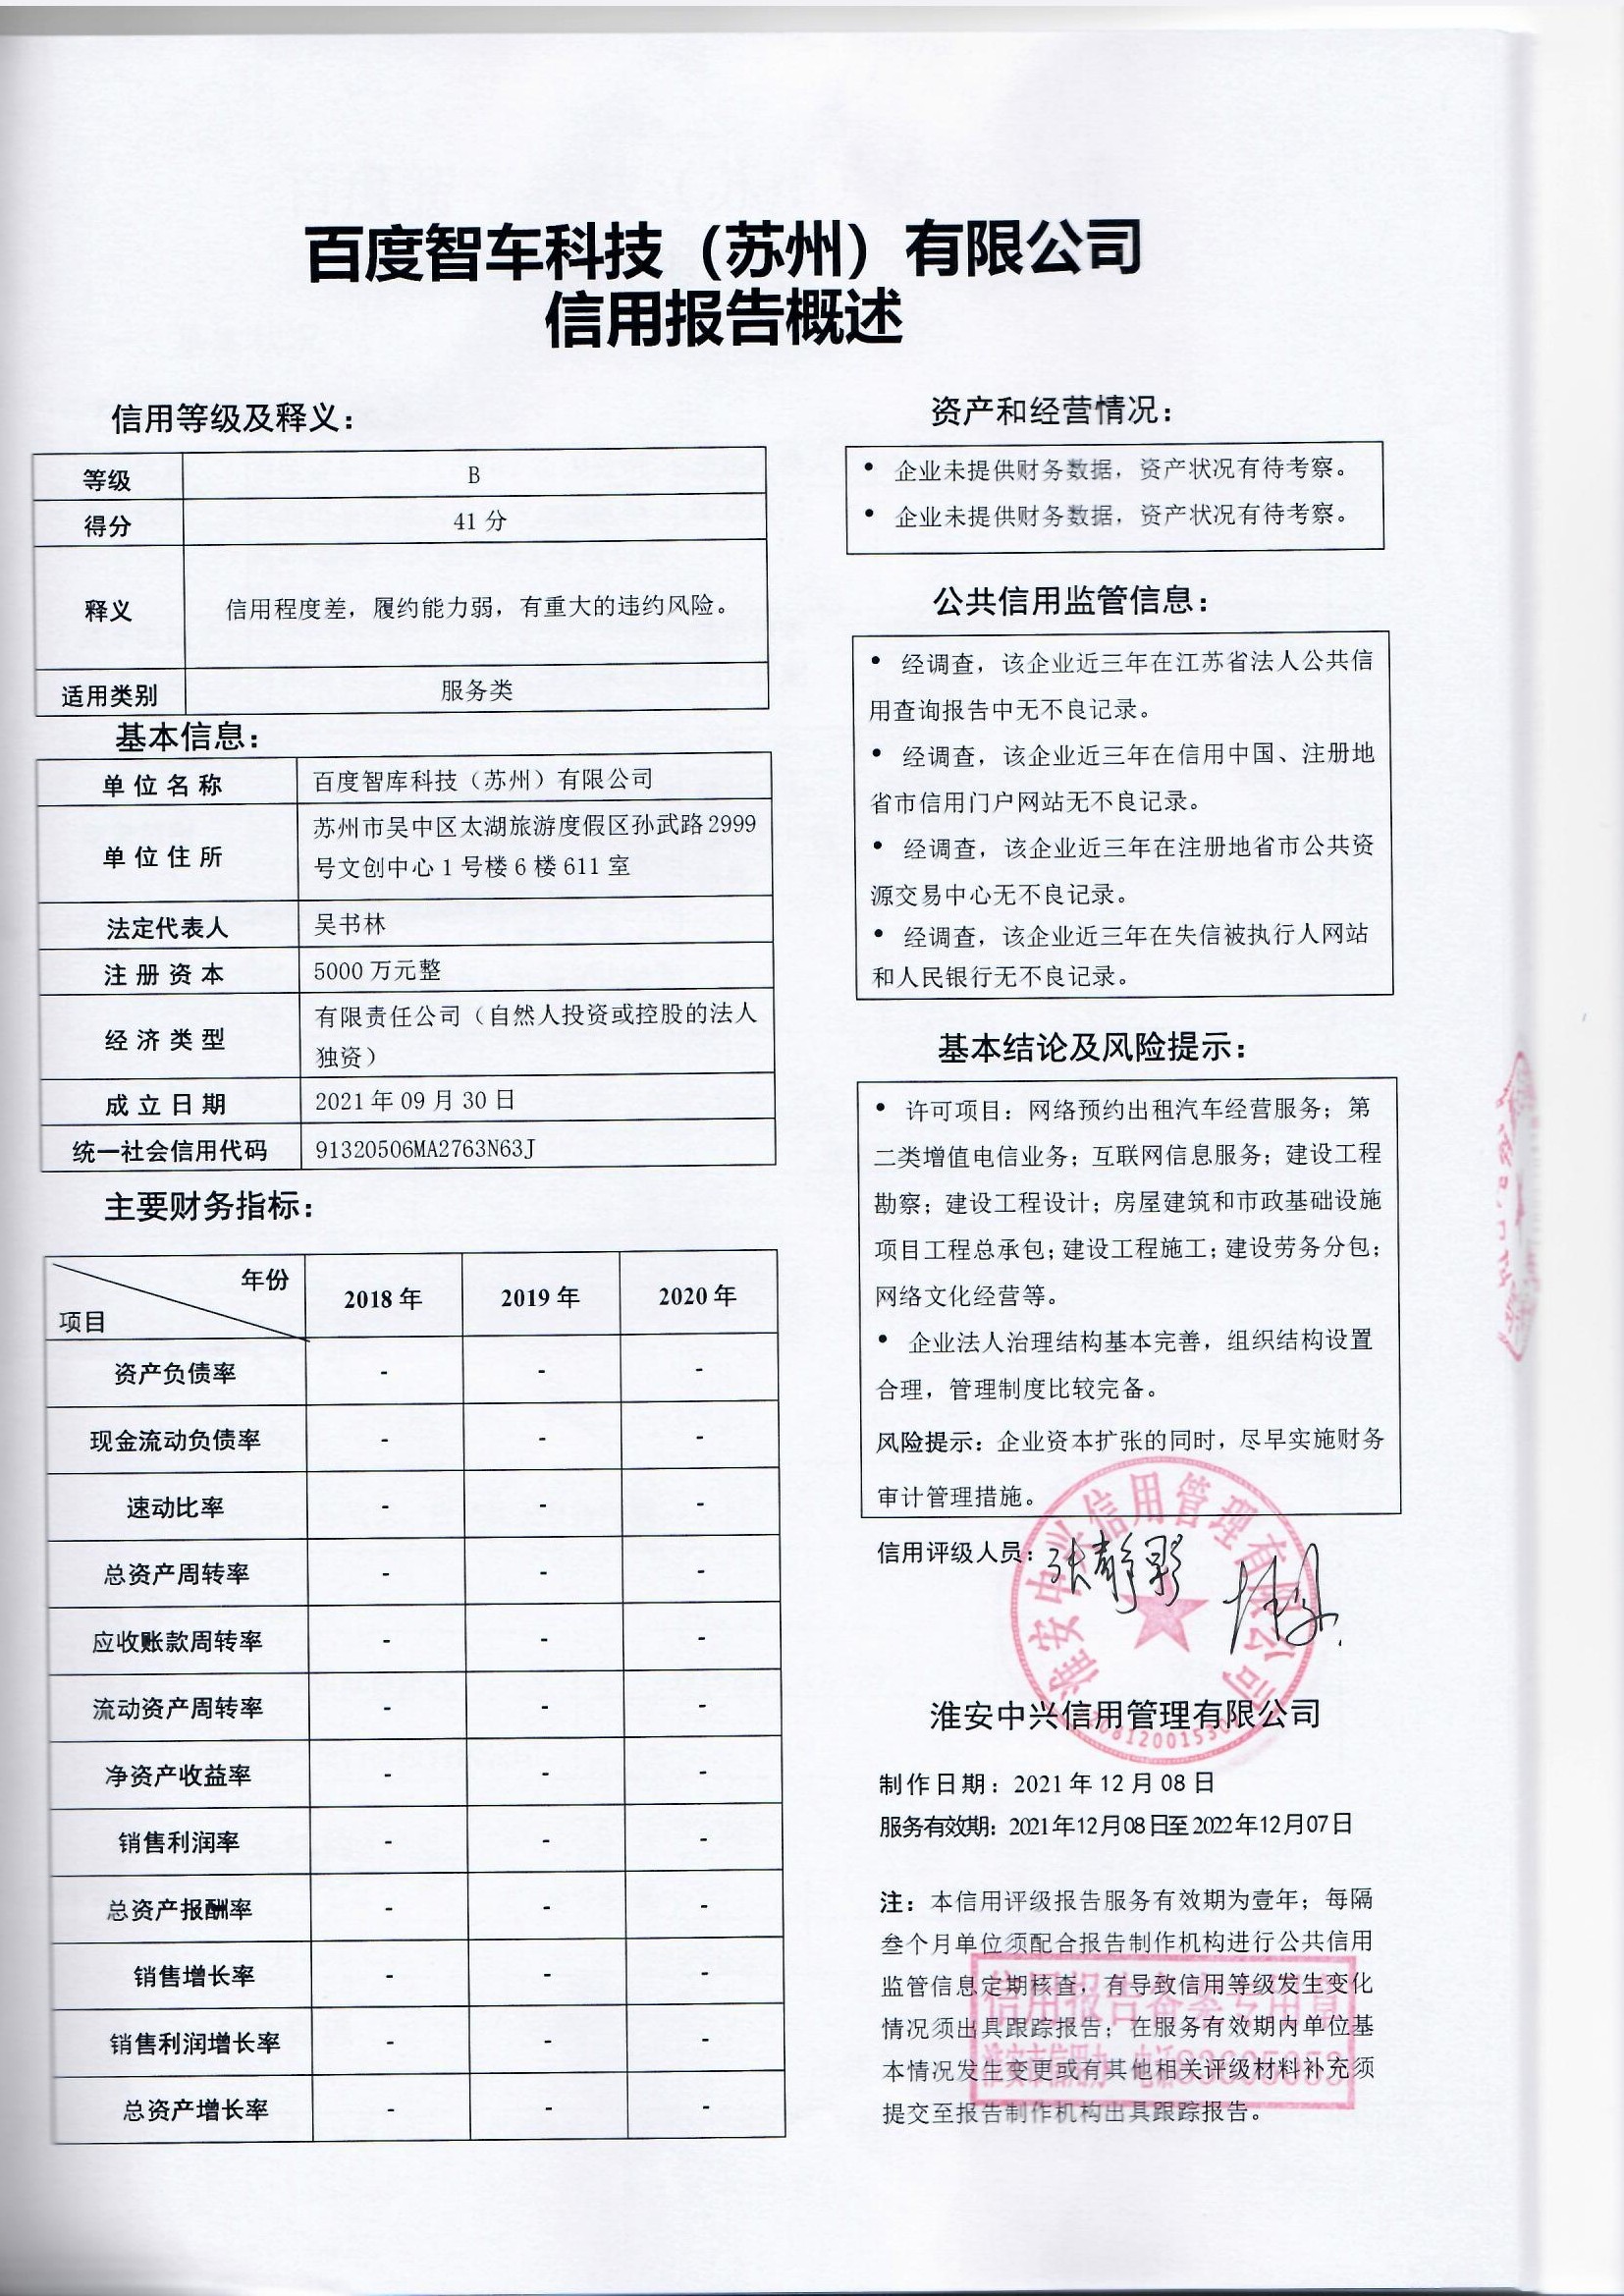 百度智车科技（苏州）有限公司
信用报告概述
信用等级及释义：
等级 B
得分 41 分
释义 信用程度差，履约能力弱，有重大的违约风险。
适用类别 服务类
基本信息：
单位名称 百度智库科技（苏州）有限公司
单位住所 苏州市吴中区太湖旅游度假区孙武路 2999
号文创中心 1 号楼 6 楼 611 室
法定代表人 吴书林
注册资本 5000 万元整
经济类型 有限责任公司（自然人投资或控股的法人
独资）
成立日期 2021 年 09 月 30 日
统一社会信用代码 91320506MA2763N63J
主要财务指标：
年份
项目
2018 年 2019 年 2020 年
资产负债率 - - -
现金流动负债率 - - -
速动比率 - - -
总资产周转率 - - -
应收账款周转率 - - -
流动资产周转率 - - -
净资产收益率 - - -
销售利润率 - - -
总资产报酬率 - - -
销售增长率 - - -
销售利润增长率 - - -
总资产增长率 - - -
资产和经营情况：
• 企业未提供财务数据，资产状况有待考察。
• 企业未提供财务数据，资产状况有待考察。
公共信用监管信息：
• 经调查，该企业近三年在江苏省法人公共信
用查询报告中无不良记录。
• 经调查，该企业近三年在信用中国、注册地
省市信用门户网站无不良记录。
• 经调查，该企业近三年在注册地省市公共资
源交易中心无不良记录。
• 经调查，该企业近三年在失信被执行人网站
和人民银行无不良记录。
基本结论及风险提示：
• 许可项目：网络预约出租汽车经营服务；第
二类增值电信业务；互联网信息服务；建设工程
勘察；建设工程设计；房屋建筑和市政基础设施
项目工程总承包；建设工程施工；建设劳务分包；
网络文化经营等。
• 企业法人治理结构基本完善，组织结构设置
合理，管理制度比较完备。
风险提示：企业资本扩张的同时，尽早实施财务
审计管理措施。
信用评级人员：张静影
淮安中兴信用管理有限公司
淮安中兴信用管理有限公司
制作日期：2021 年 12 月 08 日
服务有效期：2021 年 12 月 08 日至 2022 年 12 月 07 日
注：本信用评级报告服务有效期为壹年；每隔
叁个月单位须配合报告制作机构进行公共信用
监管信息定期核查，有导致信用等级发生变化
情况须出具跟踪报告；在服务有效期内单位基
本情况发生变更或有其他相关评级材料补充须
提交至报告制作机构出具跟踪报告。
信用报告备案专用章
淮安市信用办